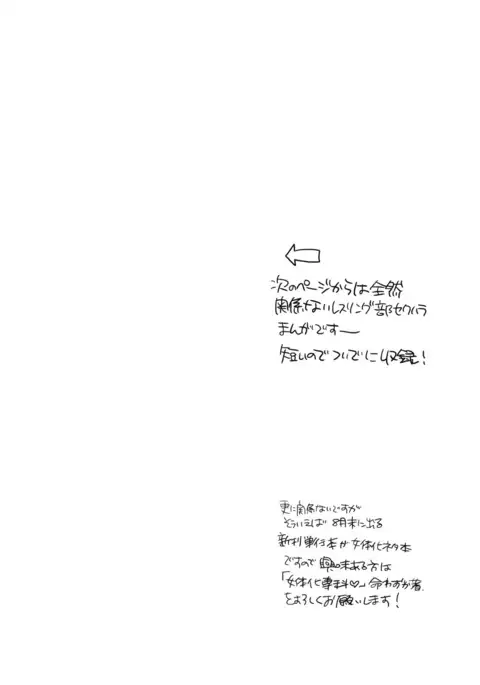 次のページからは全然
関係ないレスリング部セクハラ
まんがですー
短いのでついでに収録！
更に関係ないですが
そういえば 8月末に出る
新刊単行本が女体化ネタ本
ですので興味ある方は
「女体化専科♡」命わずか著
をよろしくお願いします！